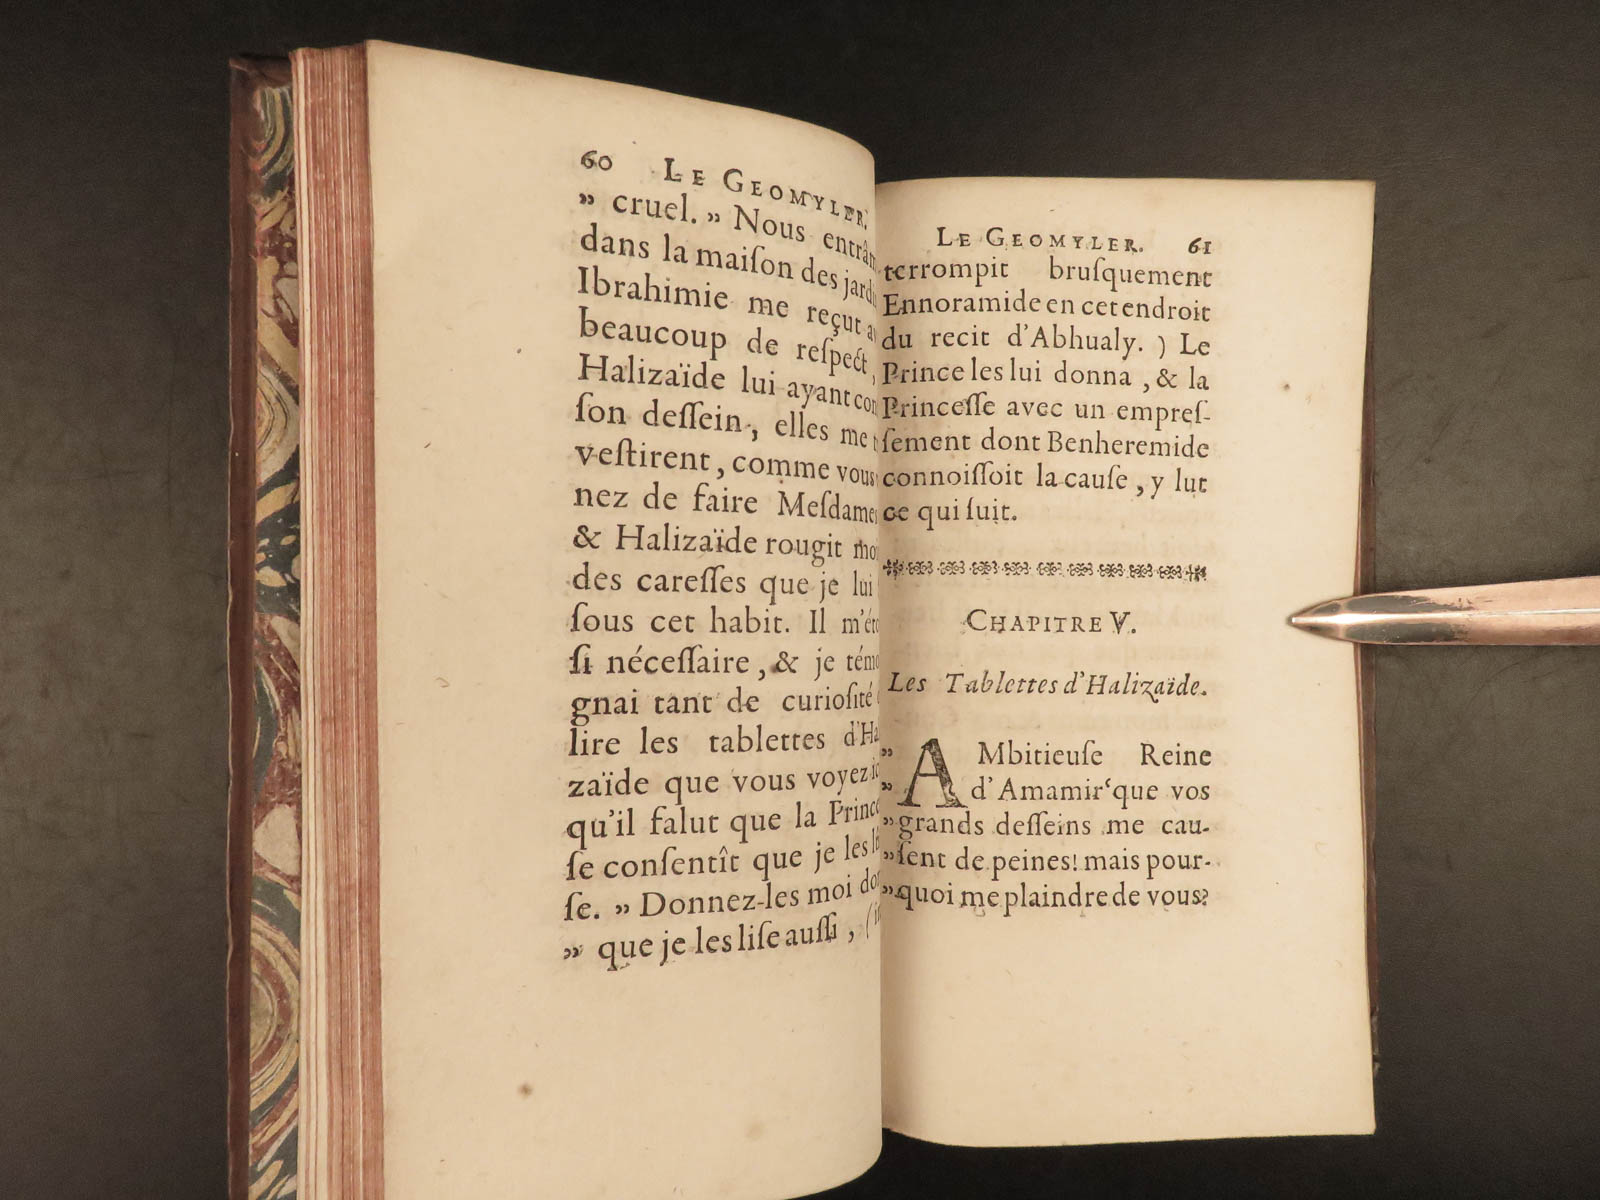 60 LE GEOMYLER.
„ cruel. „ Nous
dans la maiſon des
Ibrahimie me reçut
beaucoup de reſpect,
Halizaïde lui ayant
ſon deſſein, elles me
veſtirent, comme vous
nez de faire Meſdames
& Halizaïde rougit
des careſſes que je lui
ſous cet habit. Il
ſi néceſſaire, & je
gnai tant de curioſité
lire les tablettes
zaïde que vous voyez
qu'il falut que la
ſe conſentît que je les
ſe. „ Donnez-les moi
„ que je les liſe auſſi,
LE GEOMYLER. 61
terrompit bruſquement
Ennoramide en cet endroit
du recit d'Abhualy. ) Le
Prince les lui donna, & la
Princeſſe avec un empreſ-
ſement dont Benheremide
connoiſſoit la cauſe, y lut
ce qui ſuit.
CHAPITRE V.
Les Tablettes d'Halizaïde.
„ AMbitieuſe Reine
„ d'Amamir que vos
„ grands deſſeins me cau-
„ ſent de peines! mais pour-
„ quoi me plaindre de vous?